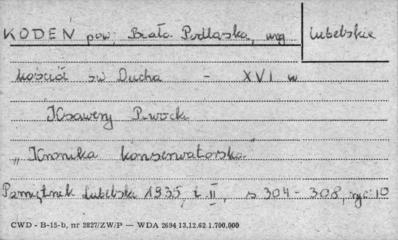 KODEŃ pow. Biała Podlaska, woj. lubelskie
kościół św Ducha - XVI w
Ksawery Piwocki
„Kronika konserwatorska"
Pamiętnik Lubelski 1935, t. II, s 304 - 308, ryc. 10
CWD - B-15-b, nr 2827/ZW/P — WDA 2694 13.12.62 1.700.000